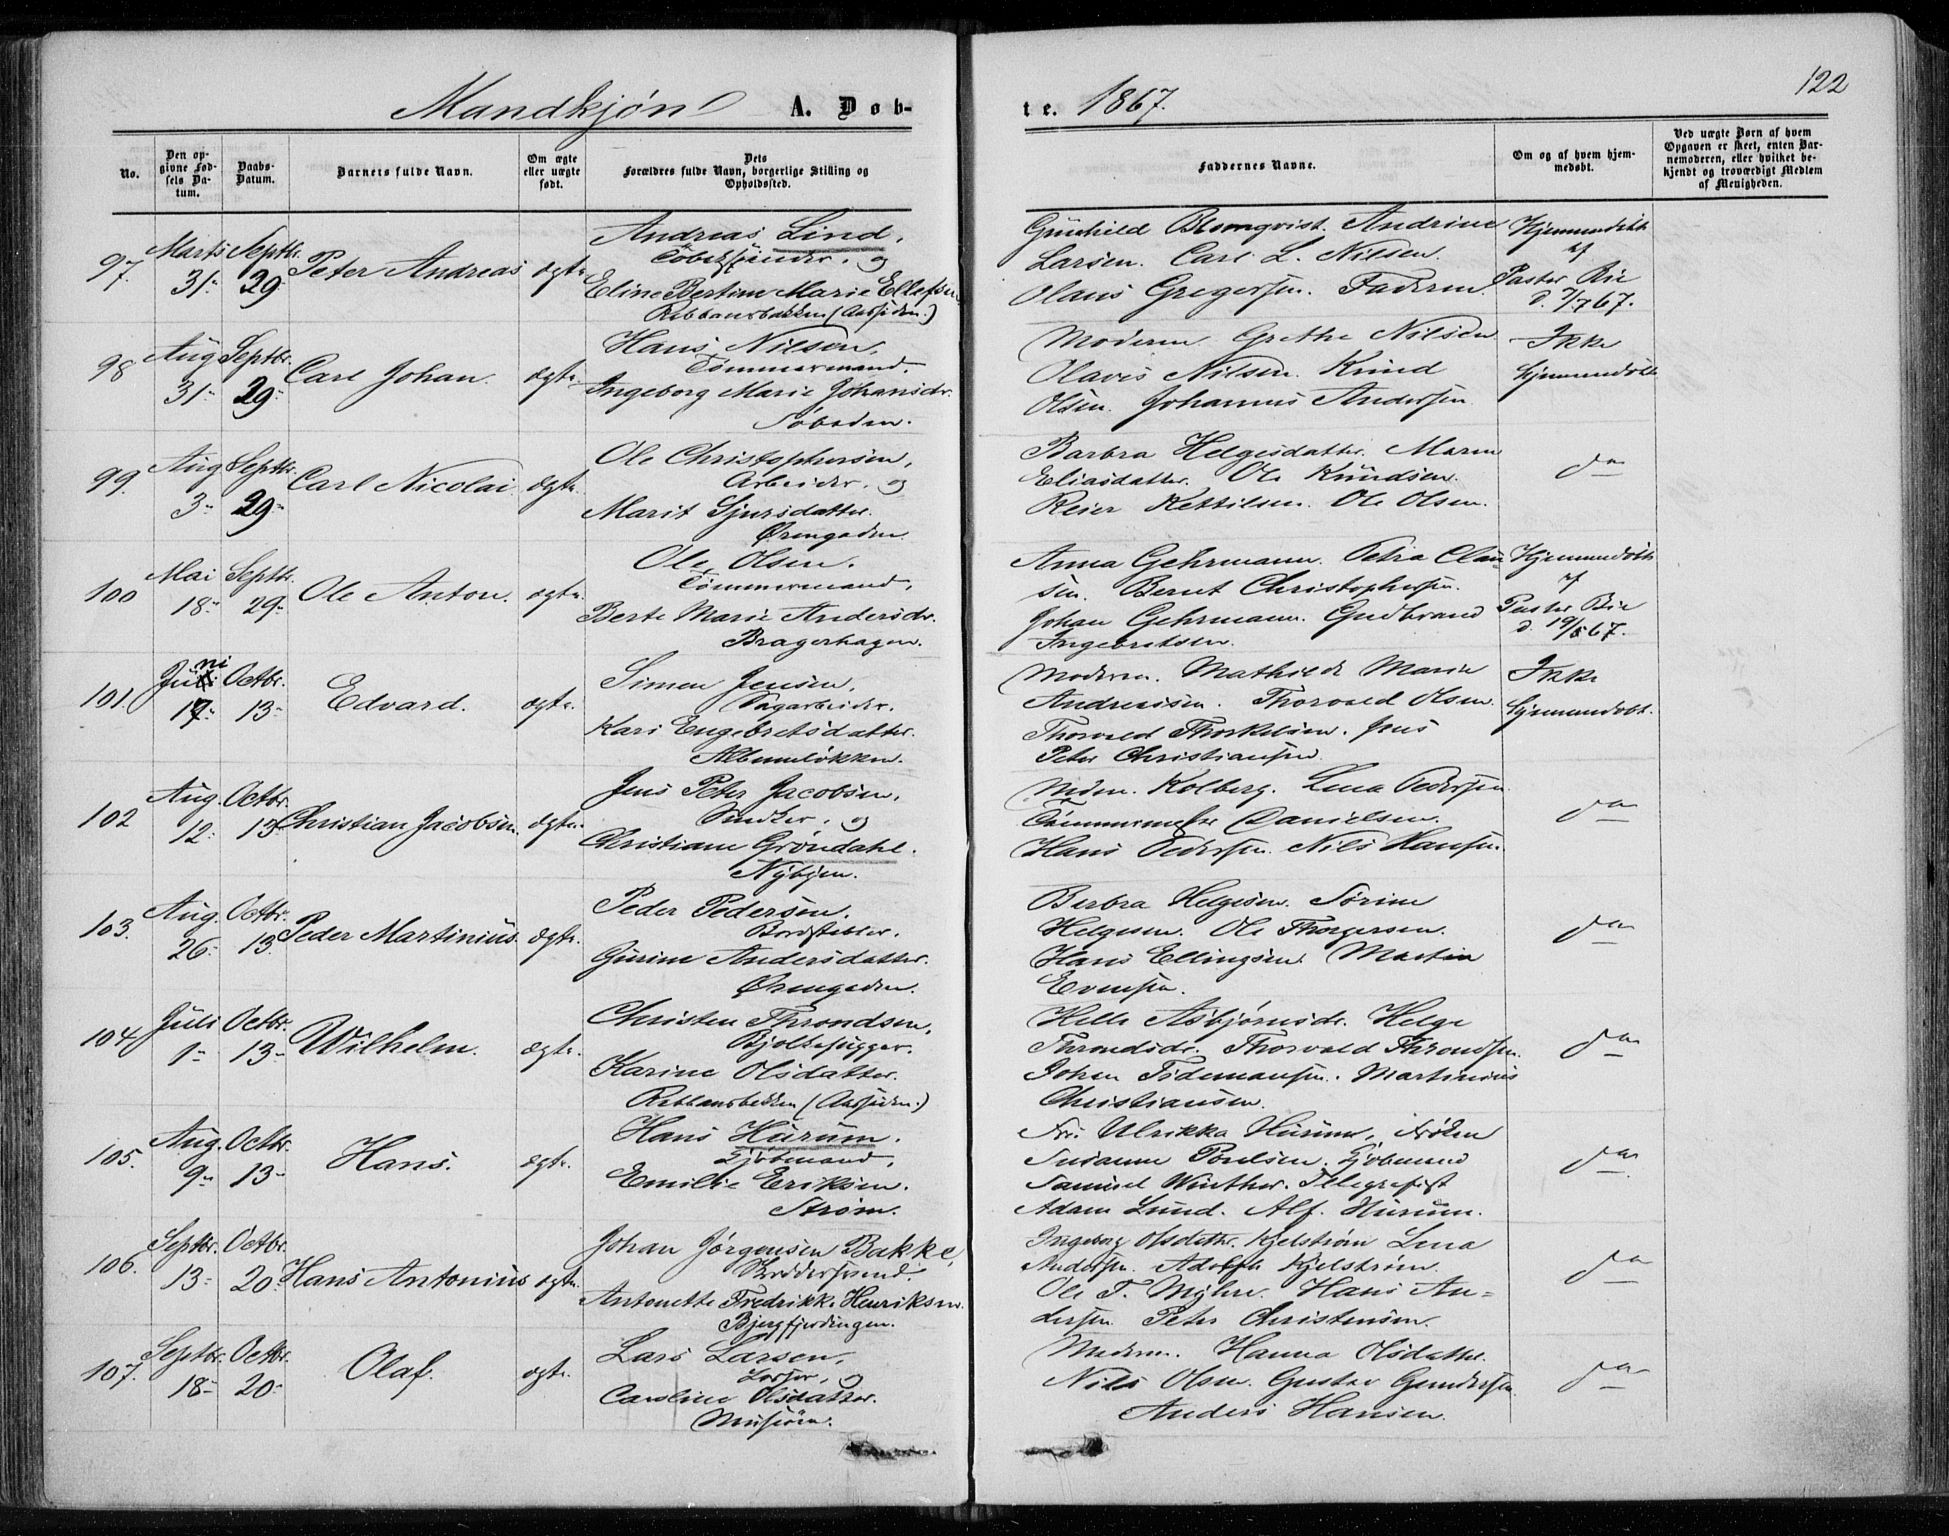 Mandkjøn A. Døb-
No.
Den opgivne Fødsels Datum.
Daabs-Datum.
Barnets fulde Navn.
Om ægte eller uægte født.
Dets Forældres fulde Navn, borgerlige Stilling og Opholdssted.
97. Marts 31- Septbr. 29- Peter Andreas ægte.
Andreas Lind,
og
Eline Bertine Marie Ellefsen
98 Aug 31- Septbr. 29- Carl Johan. ægte.
Hans Nilsen,
Tømmermand.
Ingeborg Marie Johansdr.
99. Aug 3- Septbr. 29- Carl Nicolai ægte.
Ole Christophersen,
Arbeider, og
Marit Sjursdatter.
Ørengaden.
100 Mai 18- Septbr. 29- Ole Anton. ægte.
Ole Olsen.
Tømmermand,
Berte Marie Andersdr.
Bragerhagen.
101. Juni 17- Octbr. 13- Edvard. ægte.
Simen Jensen,
Dagarbeider.
Kari Engebretsdatter.
Albumløkken.
102 Aug. 12- Octbr. 13- Christian Jacobsen. ægte.
Jens Peter Jacobsen,
Snedker, og
Christiane Grøndahl.
Nybyen.
103. Aug. 26- Octbr. 13 Peder Martinius. ægte.
Peder Pedersen.
Bordstabler.
Gurine Andersdatter.
Ørengaden.
104. Juli 1- Octbr. 13- Wilhelm. ægte.
Christen Throndsen,
Karine Olsdatter.
105. Aug. 9- Octbr. 13- Hans. ægte.
Hans Hurum.
Kjøbmand,
Emilie Eriksen.
Strøm.
106. Septbr. 13- Octbr. 20- Hans Antonius ægte.
Johan Jørgensen Bakke,
Skræddersvend.
Antonette Fredrikke Henriksen.
Bjergfjerdingen.
107. Septbr. 18- Octbr. 20- Olaf. ægte.
Lars Larsen,
og
Caroline Olsdatter.
te. 1867.
122
Faddernes Navne.
Om og af hvem hjemmedøbt.
Ved uægte Børn af hvem Opgaven er skeet, enten Barnemoderen, eller hvilket bekjendt og troværdigt Medlem af Menigheden.
Gunhild Blomqvist. Andrine Hjemmedøbt
Larsen. Carl L. Nilsen. af
Olaus Gregersen. Faderen. Pastor Bie
d. 7/7 67.
Moderen Grethe Nilsen Ikke
Olaves Nilsen. Knud hjemmedøbt
Olsen. Johannes Andersen.
Barbra Helgesdatter. Maren
Eliasdatter. Ole Knudsen. do
Reier Kettilsen. Ole Olsen.
Anna Gehrmann. Petra Clau Hjemmedøbt
sen. Bernt Christophersen. af
Johan Gehrmann. Gudbrand Pastor Bie
Ingebretsen. d. 19/5 67.
Moderen. Mathilde Marie Ikke
Andreasen. Thorvald Olsen. hjemmedøbt.
Thorvald Thorkelsen. Jens
Peter Christiansen.
Mdm. Kolberg. Lena Pedersen
Danielsen. do
Hans Pedersen. Nils Hansen.
Berbra Helgesen. Sørine
Helgesen. Ole Thorgersen. do
Hans Ellingsen. Martin
Evensen.
Helle Asbjørnsdr. Helge
Throndsdr. Thorvald Throndsen. do
Johan Tidemansen. Martinius
Christiansen.
Fru Ulrikka Hurum, Frøken
Susanne Poulsen. Kjøbmand do
Samuel Winther. Telegrafist
Adam Lund. Alf. Hurum.
Ingeborg Olsdatter. Kjelstrøm Lena
Andersen. Adolph Kjelstrøm. do
Ole T. Myhre. Hans An-
dersen Peter Christensen.
Moderen. Hanna Olsdatter.
Nils Olsen. Gustav Gundersen. do
Anders Hansen.